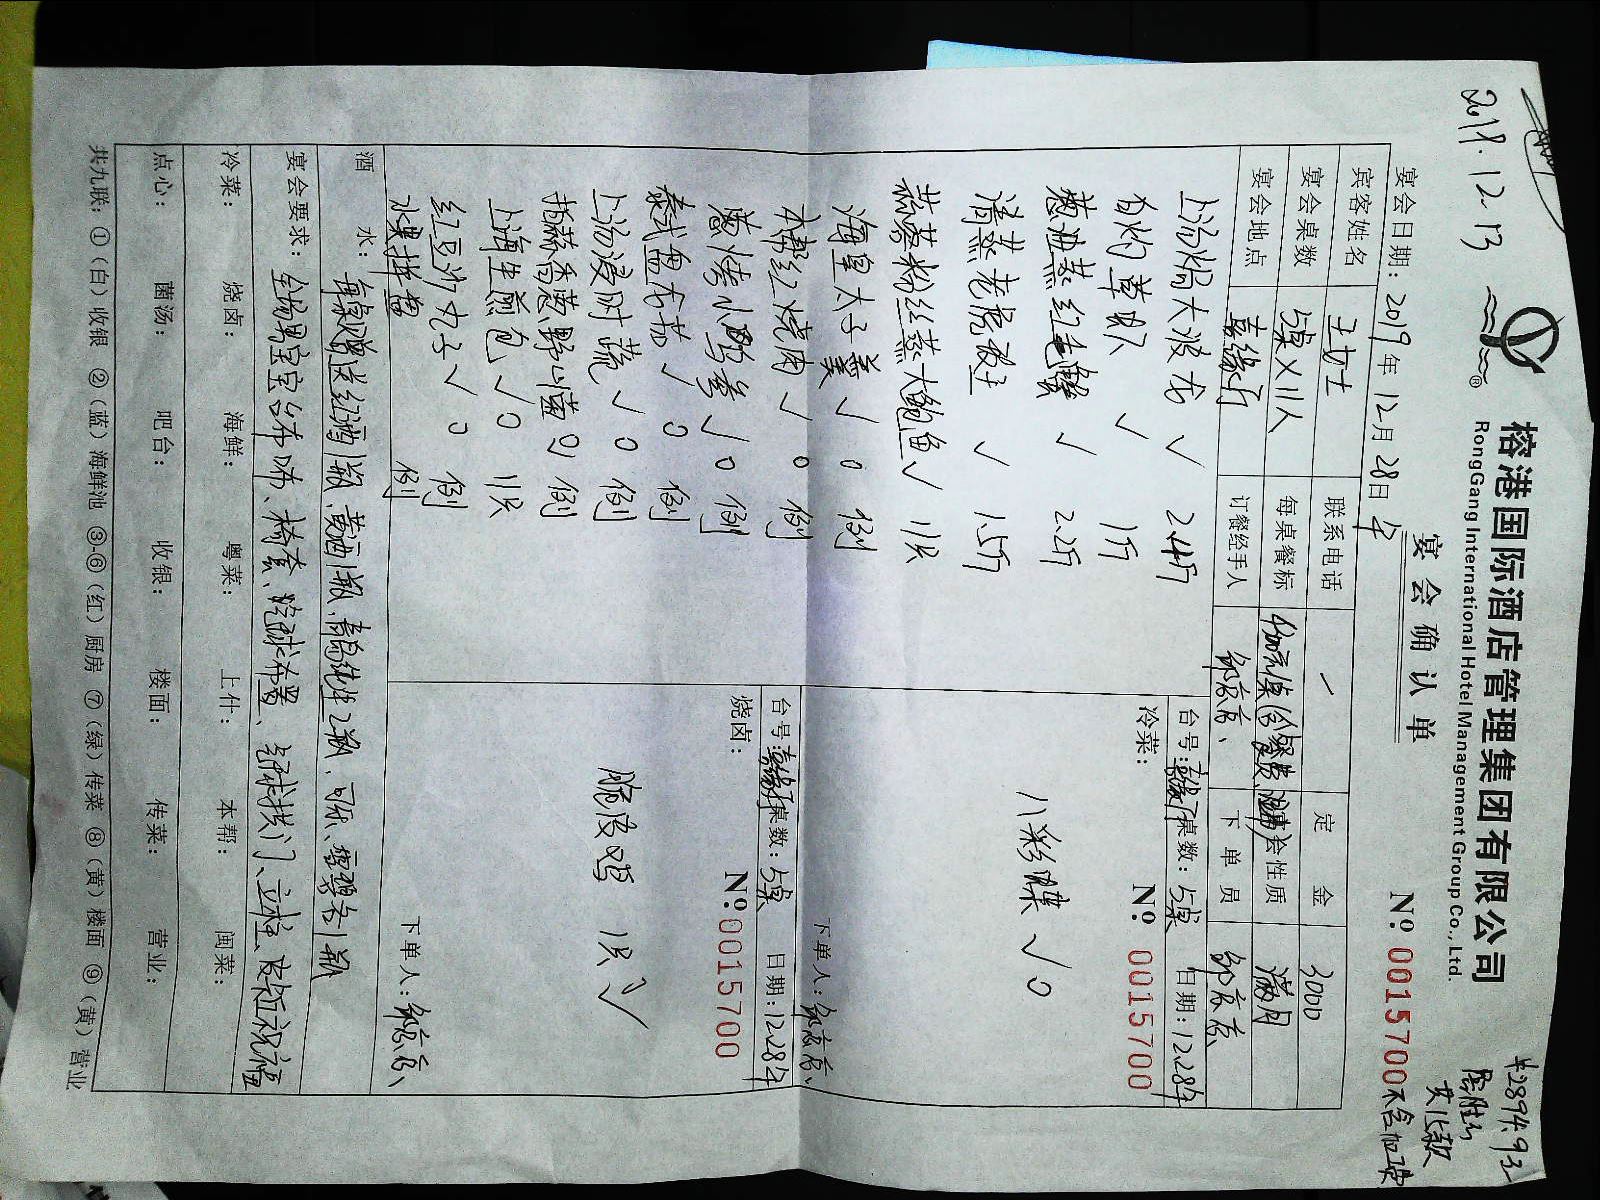 2019.12.13
榕港国际酒店管理集团有限公司
RongGang International Hotel Management Group Co., Ltd.
¥2894.93
宴会确认单
宴会日期：2019年12月28日午
№ 0015700 不含加菜
宾客姓名 王女士 联系电话 / 定金 3000
宴会桌数 5桌×11人 每桌餐标 宴会性质 满月
宴会地点 喜缘厅 订餐经手人 下单员
上汤焗大波龙 ✓ 2.4斤
白灼草虾 ✓ 1斤
葱油蒸红毛蟹 ✓ 2.2斤
清蒸老虎斑 ✓ 1.5斤
蒜蓉粉丝蒸大鲍鱼 ✓ 11只
海皇太子羹 ✓ 0 例
本帮红烧肉 ✓ 0 例
葱烤小野参 ✓ 0 例
泰式盘龙茄 ✓ 0 例
上汤浸时蔬 ✓ 0 例
招赫香葱野山菌 0 例
上海生煎包 ✓ 0 11只
红豆沙丸子 ✓ 0 例
水果拼盘 例
台号：喜缘厅 桌数：5桌 日期：12.28午
冷菜： № 0015700
八彩碟 ✓ 0
下单人：
台号：喜缘厅 桌数：5桌 日期：12.28午
烧卤： № 0015700
脆皮鸡 1只 ✓
下单人：
酒水：每桌赠送红酒1瓶、黄酒1瓶、青岛纯生2瓶、可乐、雪碧各1瓶
宴会要求：全场男宝宝台布、椅套、气球布置、气球拱门、立柱、
冷菜： 烧卤： 海鲜： 粤菜： 上什： 本帮： 闽菜：
点心： 菌汤： 吧台： 收银： 楼面： 传菜： 营业：
共九联：①（白）收银 ②（蓝）海鲜池 ③-⑥（红）厨房 ⑦（绿）传菜 ⑧（黄）楼面 ⑨（黄）营业